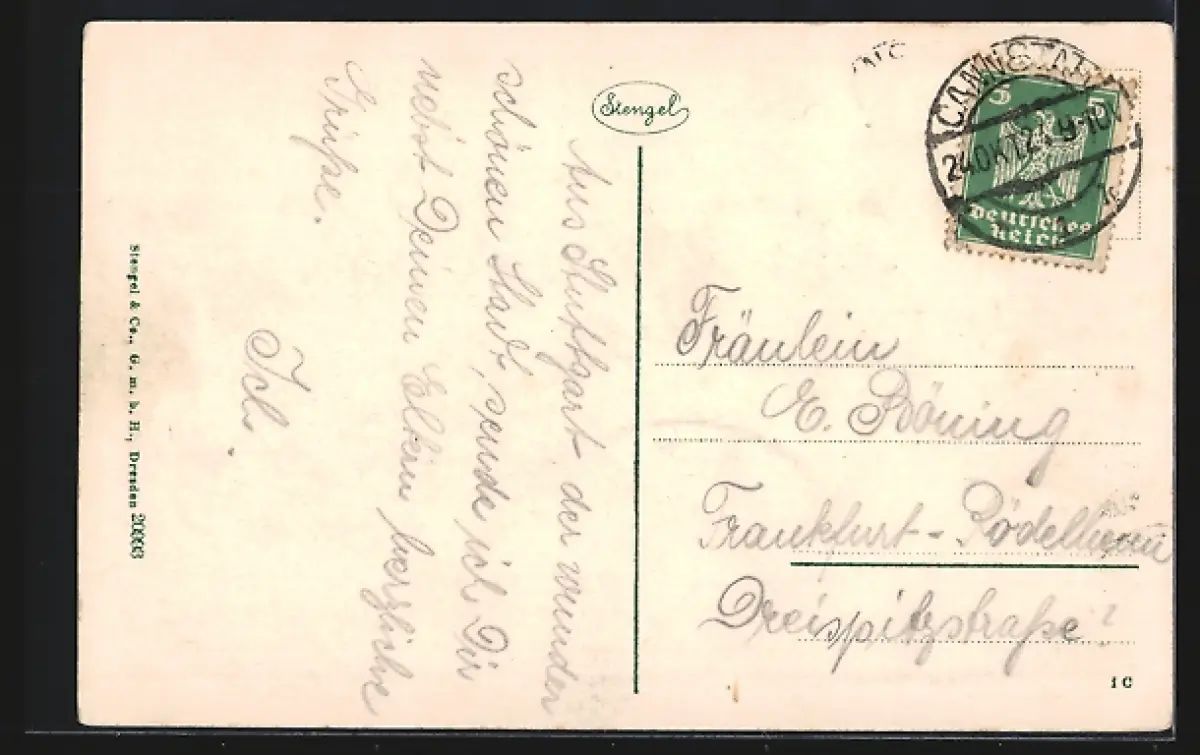 Stengel
Aus Stuttgart der wunder
schönen Stadt, sende ich Dir
nebst Deinen Eltern herzliche
Grüße.
Ich.
Stengel & Co., G. m. b. H., Dresden 20003
CANNSTATT
24 OKT 27 9-10 V
5 5
Deutsches
Reich
Fräulein
E. Böning
Frankfurt - Rödelheim
Dreispitzstraße ?
1 C